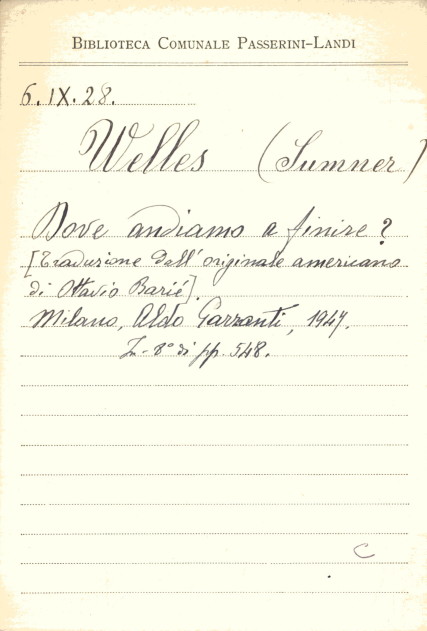 BIBLIOTECA COMUNALE PASSERINI-LANDI
6.IX.28.
Welles (Sumner)
Dove andiamo a finire?
[Traduzione dall'originale americano
di Ottavio Barié].
Milano, Aldo Garzanti, 1947.
In-8° di pp. 548.
C